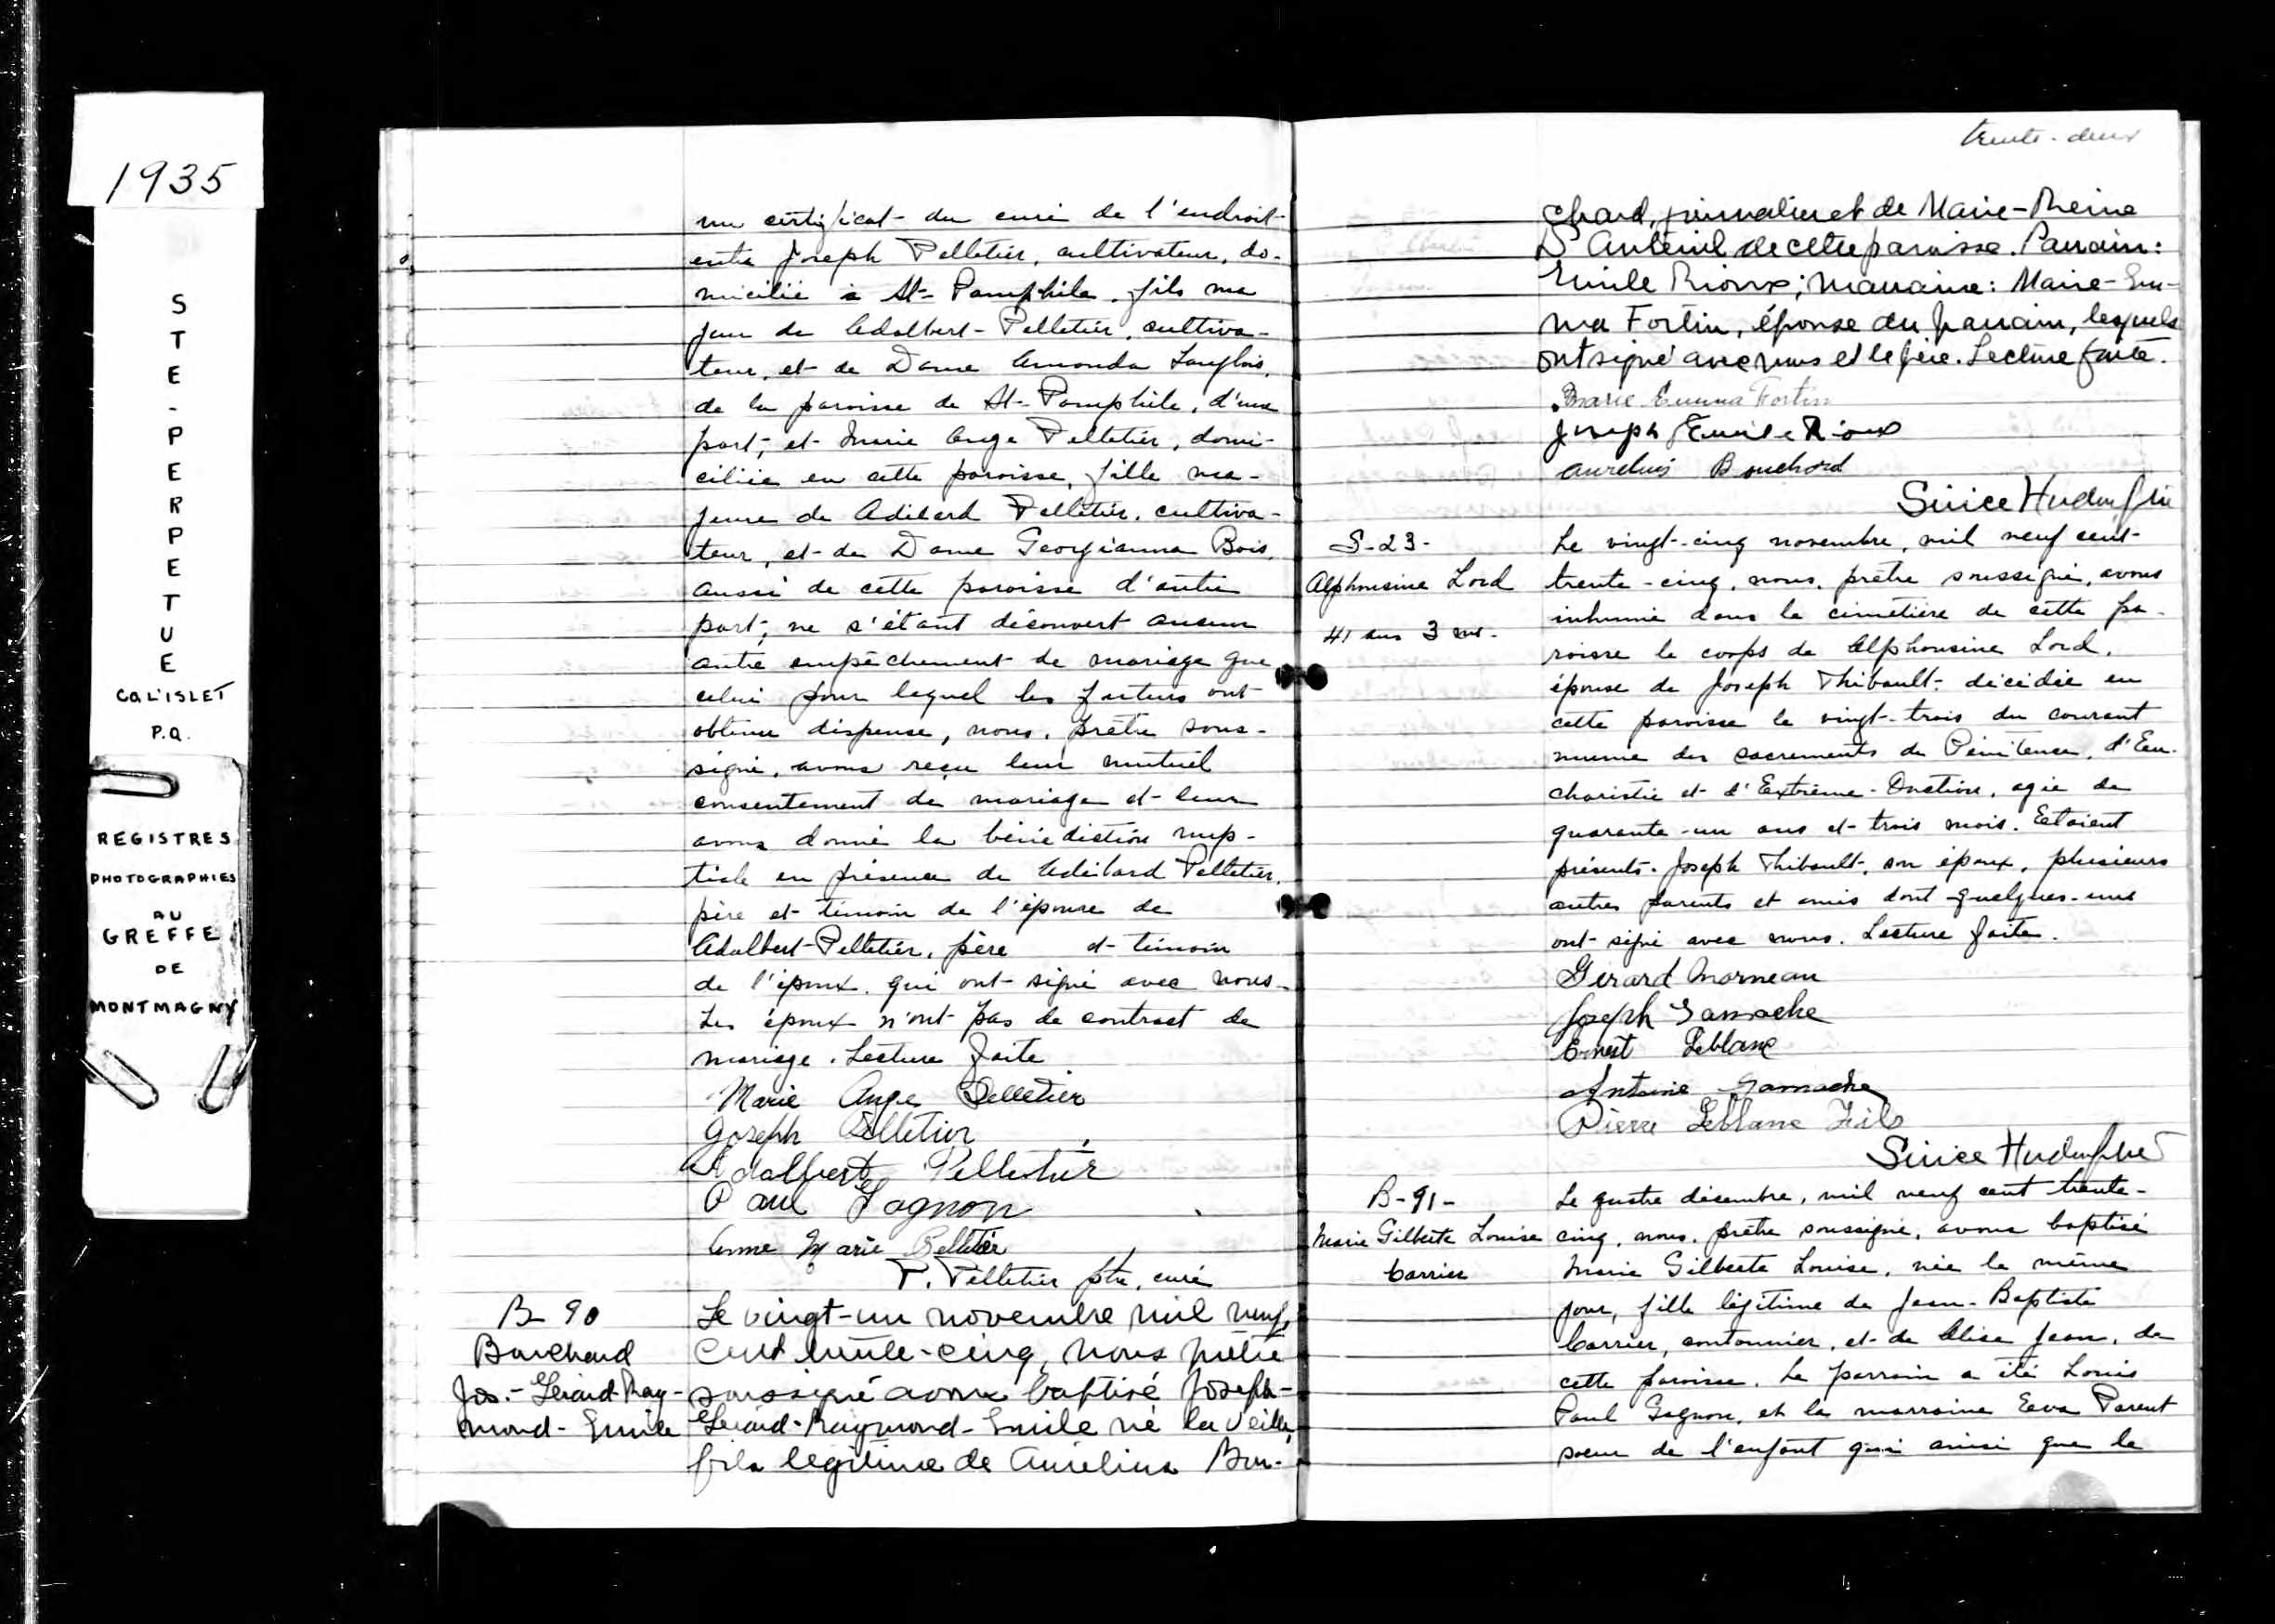 1935
STE-PERPETUE
CO. L'ISLET
P.Q.
REGISTRES
PHOTOGRAPHIES
AU
GREFFE
DE
MONTMAGNY
un certificat du curé de l'endroit
entre Joseph Pelletier, cultivateur, do-
micilié à St-Pamphile, fils ma
jeur de Adalbert Pelletier, cultiva-
teur, et de Dame Amanda Langlois,
de la paroisse de St-Pamphile, d'une
part, et Marie Ange Pelletier, domi-
ciliée en cette paroisse, fille ma-
jeure de Adélard Pelletier, cultiva-
teur, et de Dame Georgianna Bois,
aussi de cette paroisse d'autre
part, ne s'étant découvert aucun
autre empêchement de mariage que
celui pour lequel les futurs ont
obtenu dispense, nous, prêtre sous-
signé, avons reçu leur mutuel
consentement de mariage et leur
avons donné la bénédiction nup-
tiale en présence de Adélard Pelletier,
père et témoin de l'épouse de
Adalbert Pelletier, père et témoin
de l'époux, qui ont signé avec nous.
Les époux n'ont pas de contract de
mariage. Lecture faite
Marie Ange Pelletier
Joseph Pelletier
Adalbert Pelletier
Paul Gagnon
Anne Marie Pelletier
P. Pelletier ptre, curé
B- 90
Bouchard
Jos.-Gérard-Ray-
mond-Emile
Le vingt-un novembre mil neuf
cent trente-cinq, nous prêtre
soussigné avons baptisé Joseph-
Gérard-Raymond-Emile né la veille,
fils légitime de Aurélius Bou-
trente-deux
chard, journalier et de Marie-Reine
D'Auteuil de cette paroisse. Parrain:
Emile Rioux; marraine: Marie-Em-
ma Fortin, épouse du parrain, lesquels
ont signé avec nous et le père. Lecture faite.
Marie Emma Fortin
Joseph Emile Rioux
Aurelius Bouchard
S-23-
Alphonsine Lord
41 ans 3 ms.
Le vingt-cinq novembre, mil neuf cent
trente-cinq, nous, prêtre soussigné, avons
inhumé dans le cimetière de cette pa-
roisse le corps de Alphonsine Lord,
épouse de Joseph Thibault, décédée en
cette paroisse le vingt-trois du courant
munie des sacrements de Pénitence, d'Eu-
charistie et d'Extrême-Onction, agée de
quarante-un ans et trois mois. Etaient
présents. Joseph Thibault, son époux, plusieurs
autres parents et amis dont quelques-uns
ont signé avec nous. Lecture faite.
Gérard Morneau
Joseph Gamache
Ernest Leblanc
Antoine Gamache
Pierre Leblanc Fils
B-91-
Marie Gilberte Louise
Carrier
Le quatre décembre, mil neuf cent trente-
cinq, nous, prêtre soussigné, avons baptisé
Marie Gilberte Louise, née le même
jour, fille légitime de Jean-Baptiste
Carrier, cantonnier, et de Alise Jean, de
cette paroisse. Le parrain a été Louis
Paul Gagnon, et la marraine Eeva Parent
soeur de l'enfant qui ainsi que le